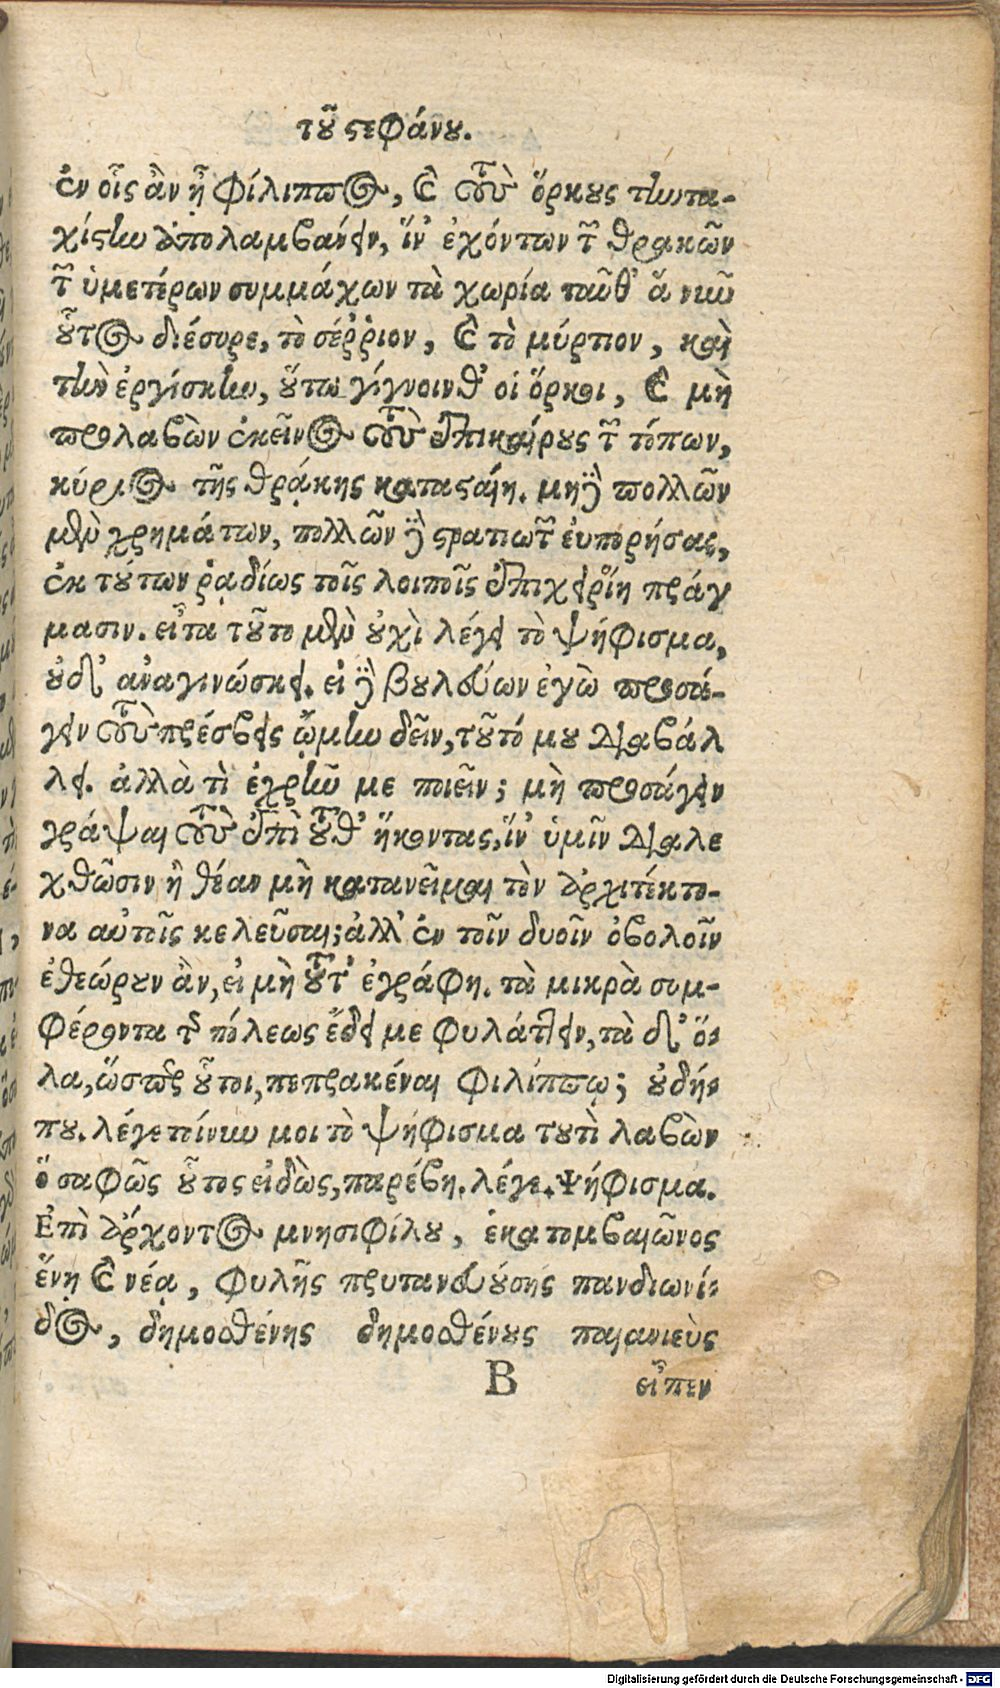 τοῦ στεφάνου.
ἐν οἷς ἂν ᾖ Φίλιππος, καὶ τοὺς ὅρκους τὴν τα-
χίστην ἀπολαμβάνειν, ἵν' ἐχόντων τῶν θρακῶν
τῶν ὑμετέρων συμμάχων τὰ χωρία ταῦθ' ἃ νῦν
οὗτος διέσυρε, τὸ σέῤῥιον, καὶ τὸ μύρτιον, καὶ
τὴν ἐργίσκην, οὕτω γίγνοινθ' οἱ ὅρκοι, καὶ μὴ
προλαβὼν ἐκεῖνος τοὺς ἐπικαίρους τῶν τόπων,
κύριος τῆς θρᾴκης κατασταίη. μηδὲ πολλῶν
μὲν χρημάτων, πολλῶν δὲ στρατιωτῶν εὐπορήσας,
ἐκ τούτων ῥᾳδίως τοῖς λοιποῖς ἐπιχειροίη πράγ
μασιν. εἶτα τοῦτο μὲν οὐχὶ λέγει τὸ ψήφισμα,
οὐδ' ἀναγινώσκει. εἰ δὲ βουλεύων ἐγὼ προσά-
γειν τοὺς πρέσβεις ᾤμην δεῖν, τοῦτό μου διαβάλ
λει. ἀλλὰ τὶ ἐχρῆν με ποιεῖν; μὴ προσάγειν
γράψαι τοὺς ἐπὶ τοῦθ' ἥκοντας, ἵν' ὑμῖν διαλε
χθῶσιν ἢ θέαν μὴ κατανεῖμαι τὸν ἀρχιτέκτο-
να αὐτοῖς κελεῦσαι; ἀλλ' ἐν τοῖν δυοῖν ὀβολοῖν
ἐθεώρουν ἂν, εἰ μὴ τοῦτ' ἐγράφη. τὰ μικρὰ συμ-
φέροντα τῆς πόλεως ἔδει με φυλάττειν, τὰ δ' ὅ-
λα, ὥσπερ οὗτοι, πεπρακέναι Φιλίππῳ; οὐδή-
που. λέγε τοίνυν μοι τὸ ψήφισμα τουτὶ λαβὼν
ὃ σαφῶς οὗτος εἰδὼς, παρέβη. λέγε. Ψήφισμα.
Ἐπὶ ἄρχοντος μνησιφίλου, ἑκατομβαιῶνος
ἕνῃ καὶ νέᾳ, Φυλῆς πρυτανευούσης πανδιονί-
δος, δημοσθένης δημοσθένους παιανιεὺς
B εἶπεν
Digitalisierung gefördert durch die Deutsche Forschungsgemeinschaft - DFG